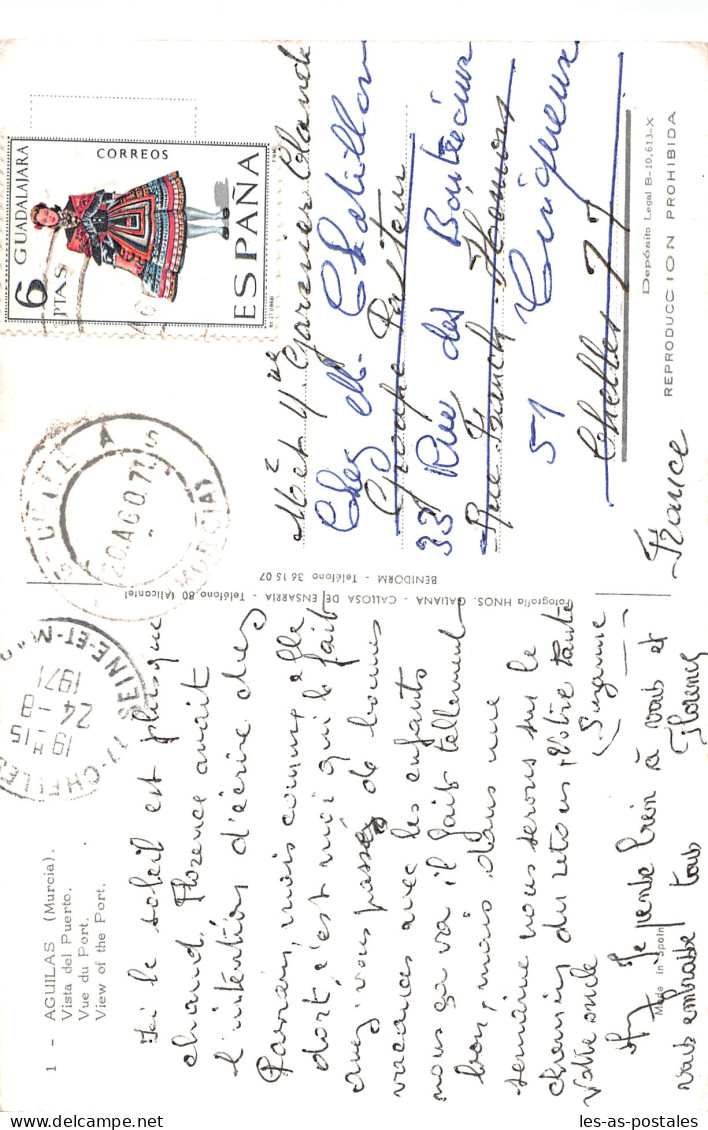 1 - AGUILAS (Murcia).
Vista del Puerto.
Vue du Port.
View of the Port.
Ici le soleil est plus que
chaud, Florence avait
l'intention d'écrire chez
Parrain, mais comme elle
dort, c'est moi qui le fait
avez vous passez de bonnes
vacances avec les enfants
nous ça va il fait tellement
bon, mais dans une
semaine nous serons sur le
chemin du retour, Votre tante
Votre oncle
Suzanne
Je pense bien à vous et
vous embrasse tous
Florence
Made in Spain
Fotografía HNOS. GALIANA - CALLOSA DE ENSARRIA - Teléfono 80 (Alicante)
BENIDORM - Teléfono 36 15 07
CHELLES
77 SEINE-ET-M
19 H 15
24 -8
1971
20 AGO. 71
MURCIA
GUADALAJARA
CORREOS
6
PTAS
ESPAÑA
M et Mme Garnier Claude
Chez M. Chatillon
Groupe Pasteur
33 Rue des
Rue
51
Chelles 77
France
Depósito Legal B-10.613-X
REPRODUCCION PROHIBIDA
les-as-postales